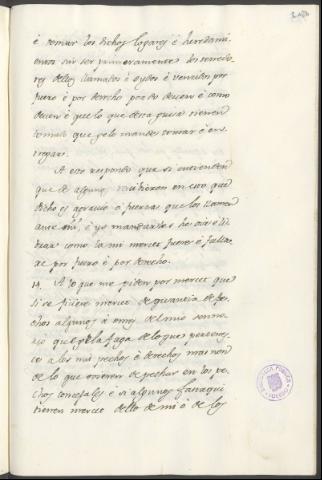 é tomar los dichos logares é heredami
entos sin ser primeramente los tenedo
res dellos llamados é oydos é vencidos por
fuero é por derecho por do deuen é como
deuen é que lo que desta guisa tienen
tomado que gelo mande tornar é en
tregar.
A esto respondo que si entienden
que de algunos recibieron en esto que
dicho es agravio é fuerza que los llamen
ante mi, é yo mandarlos he oir é li
brar como la mi merced fuere é falla
re por fuero é por derecho.
14. A lo que me piden por merced que
si se ficiere merced de quantia de pe
chos algunos á omes del mio senno
rio que gela faga de lo que pertenes
ce a los mis pechos é derechos mas non
de lo que ovieren de pechar en los pe
chos concejales é si algunos fasta qui
tienen merced dello de mi ó de los